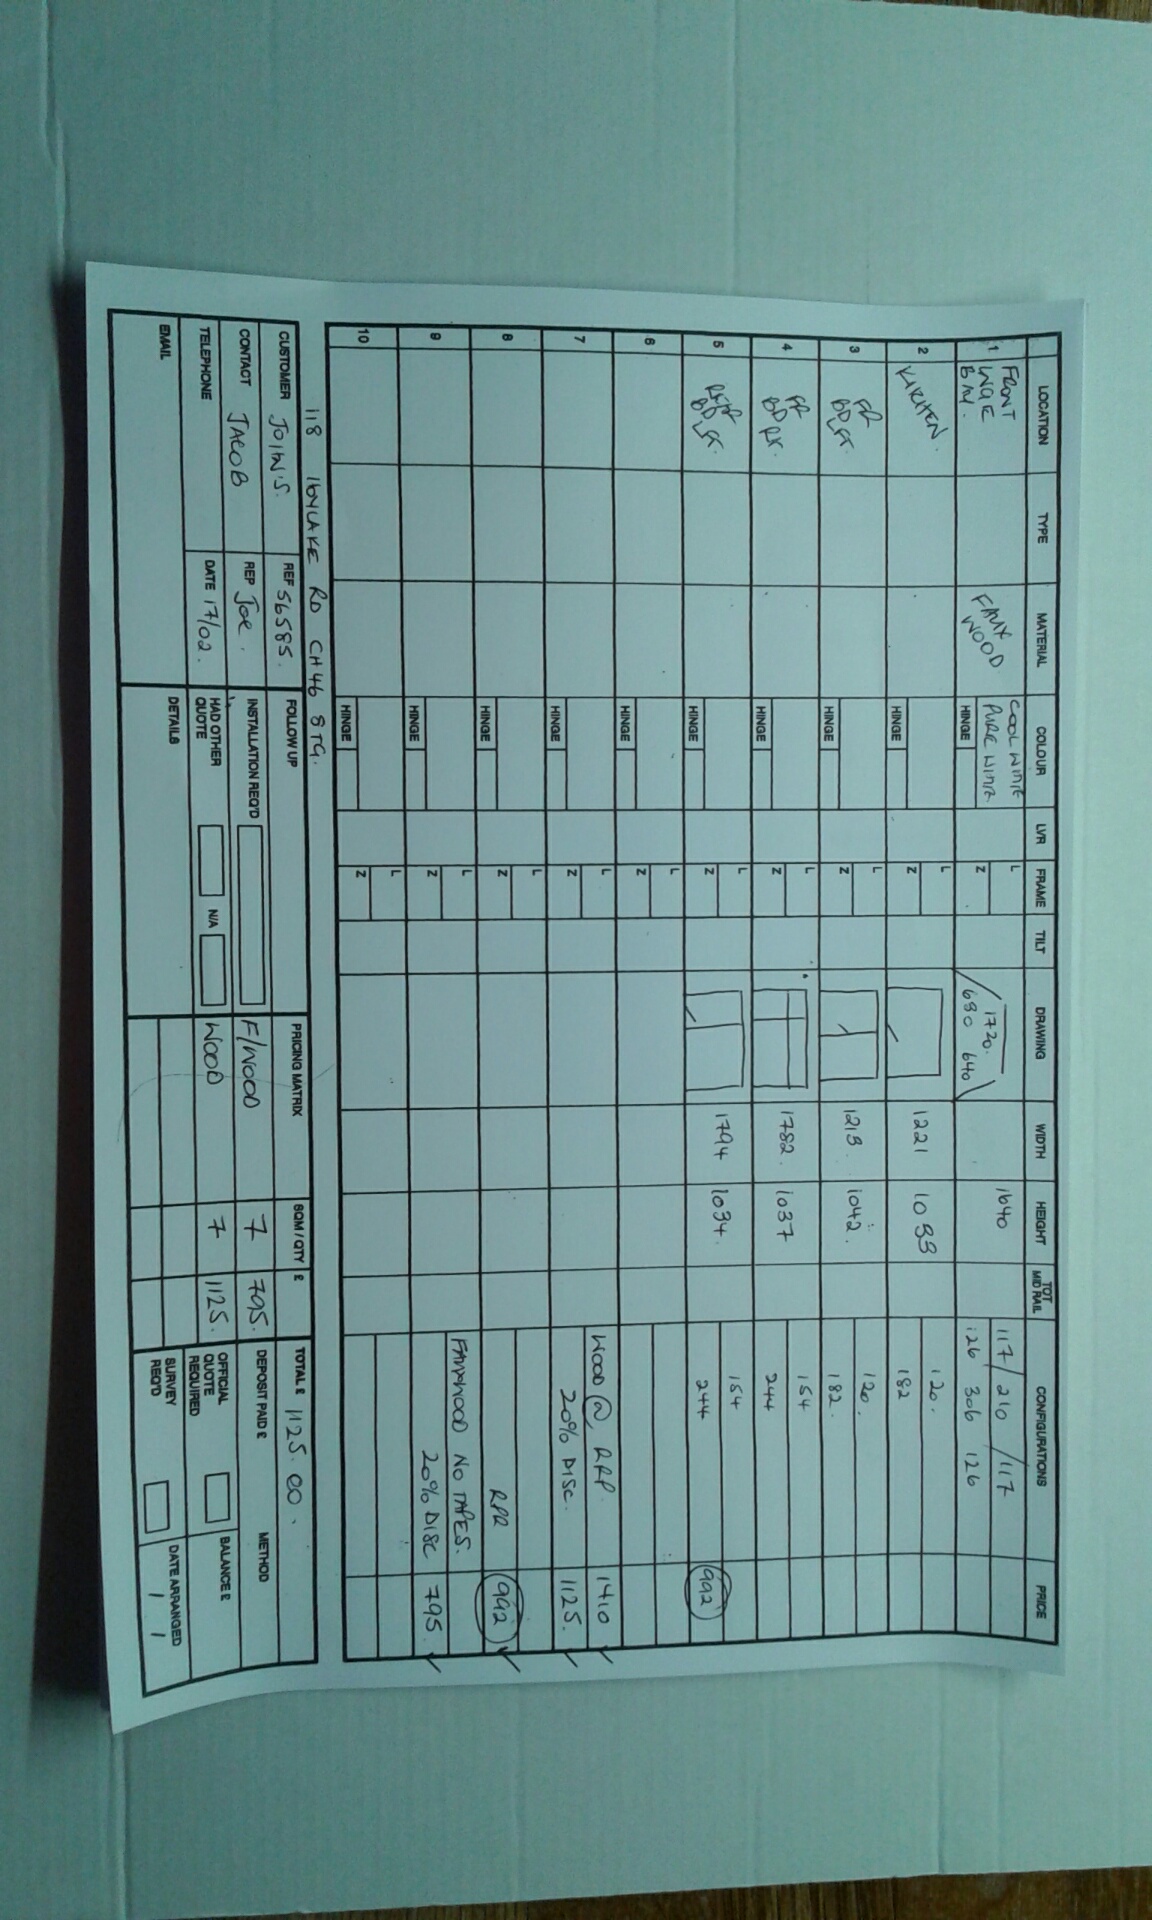 LOCATION TYPE MATERIAL COLOUR LVR FRAME TILT DRAWING WIDTH HEIGHT TOT MID RAIL CONFIGURATIONS PRICE
1 FRONT FAUX WOOD COOL WHITE L 1720. 1640 117/ 210 /117
PURE WHITE HINGE Z 690 640 126 306 126
2 KITCHEN. HINGE L Z 1221 1039 120. 182
3 FR BD LFT. HINGE L Z 1213. 1042. 120. 182.
4 FR BD RT. HINGE L Z 1782. 1037 154 244
5 BD LFT. HINGE L Z 1794 1034. 154 244 992
6 HINGE L Z
7 HINGE L Z WOOD @ RRP. 1410
20% DISC. 1125.
8 HINGE L Z RRP 992
9 HINGE L Z FAUXWOOD NO TAPES.
20% DISC 795.
10 HINGE L Z
118 RD CH46 8TG.
CUSTOMER JOIN.S. REF 56585. FOLLOW UP PRICING MATRIX SQM / QTY £ TOTAL £ 1125.00.
CONTACT JACOB REP JOE. INSTALLATION REQ'D F/WOOD 7 795. DEPOSIT PAID £ METHOD
TELEPHONE DATE 17/02. HAD OTHER QUOTE N/A WOOD 7 1125. OFFICIAL QUOTE REQUIRED BALANCE £
EMAIL DETAILS SURVEY REQ'D DATE ARRANGED / /